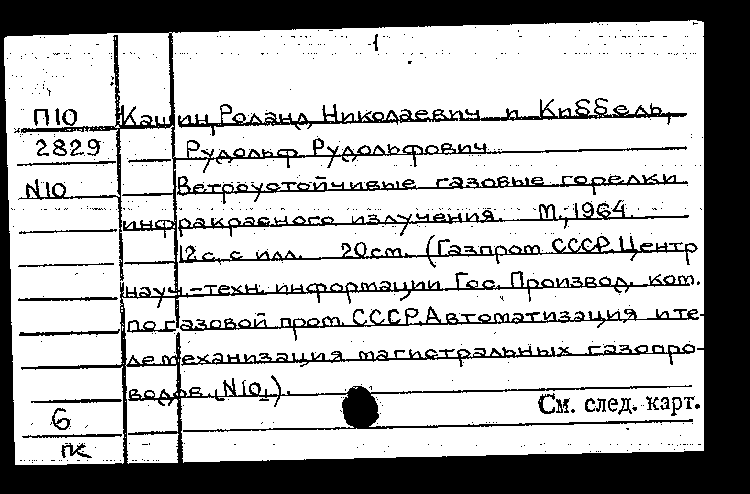 1
П10 Кашин, Роланд Николаевич и Киббель,
2829 Рудольф Рудольфович
N10 Ветроустойчивые газовые горелки
инфракрасного излучения. М., 1964.
12 с. с илл. 20 см. (Газпром СССР. Центр
науч.-техн. информации Гос. Производ. ком.
по газовой пром. СССР. Автоматизация и те-
лемеханизация магистральных газопро-
водов. (N10)).
6 См. след. карт.
пк